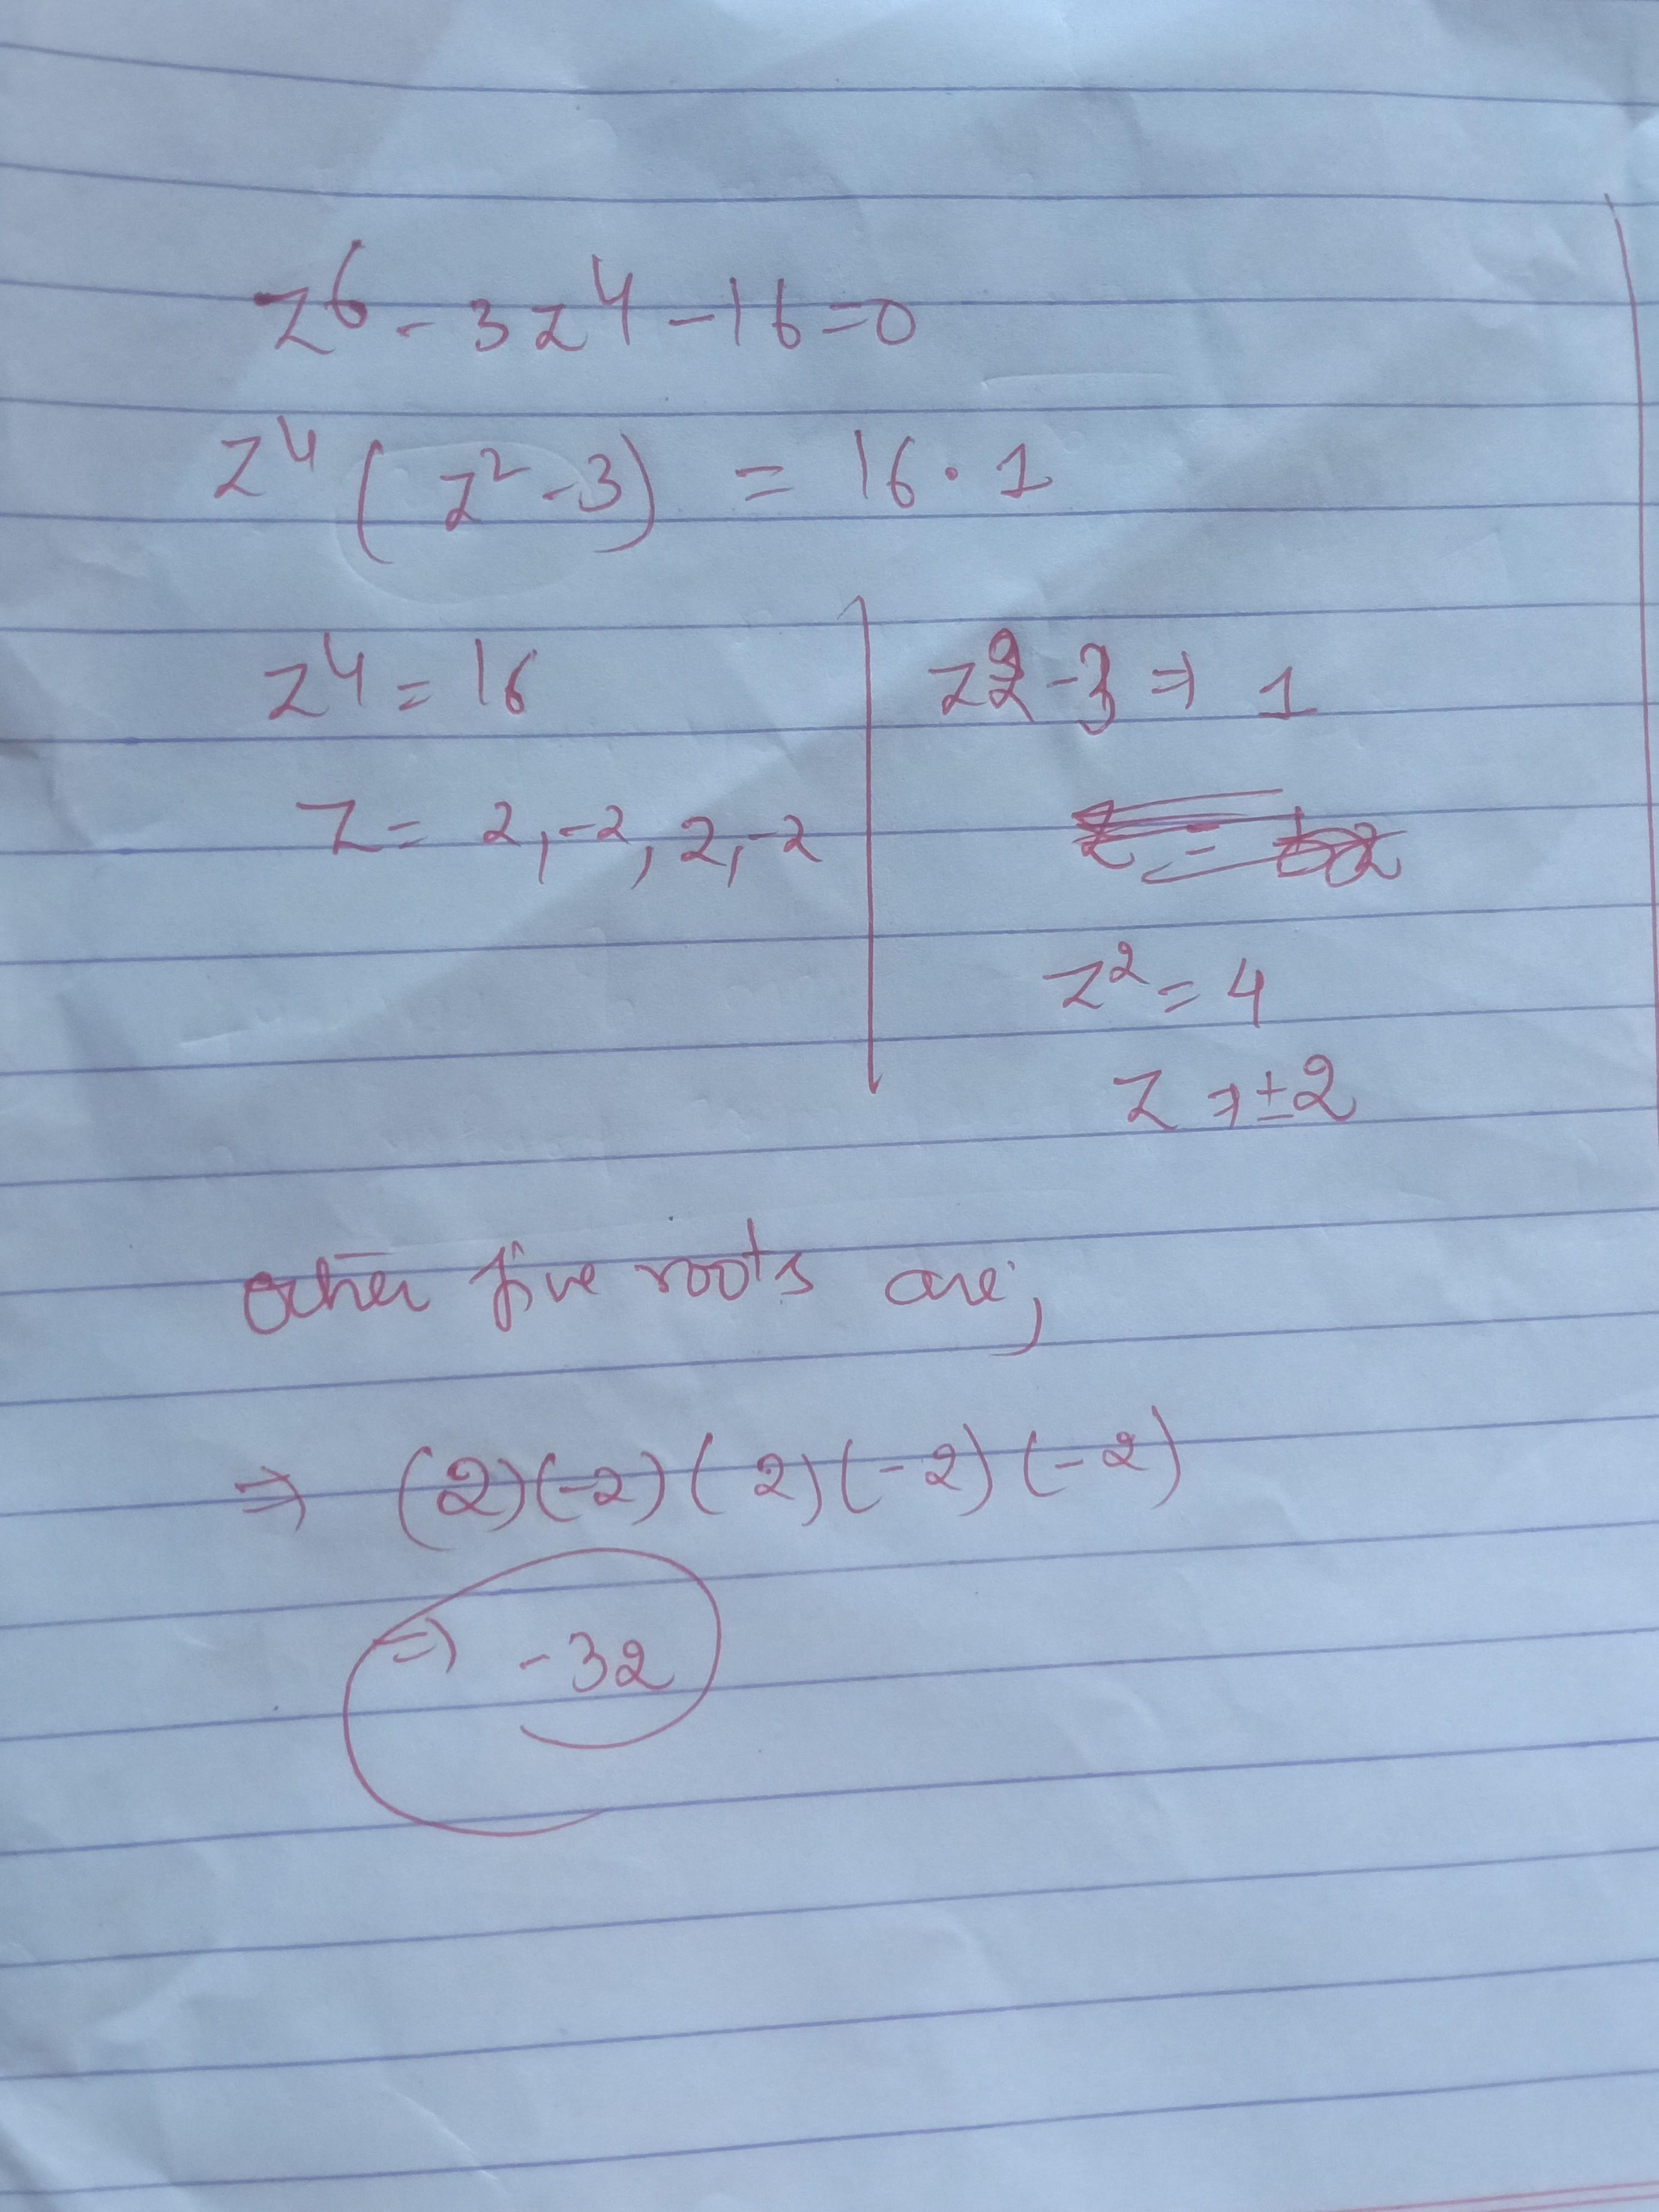 z⁶ - 3z⁴ - 16 = 0
z⁴ (z² - 3) = 16 · 1
z⁴ = 16
z = 2, -2, 2, -2
z² - 3 ⇒ 1
z² = 4
z ⇒ ±2
other five roots are;
⇒ (2)(-2)(2)(-2)(-2)
⇒ -32